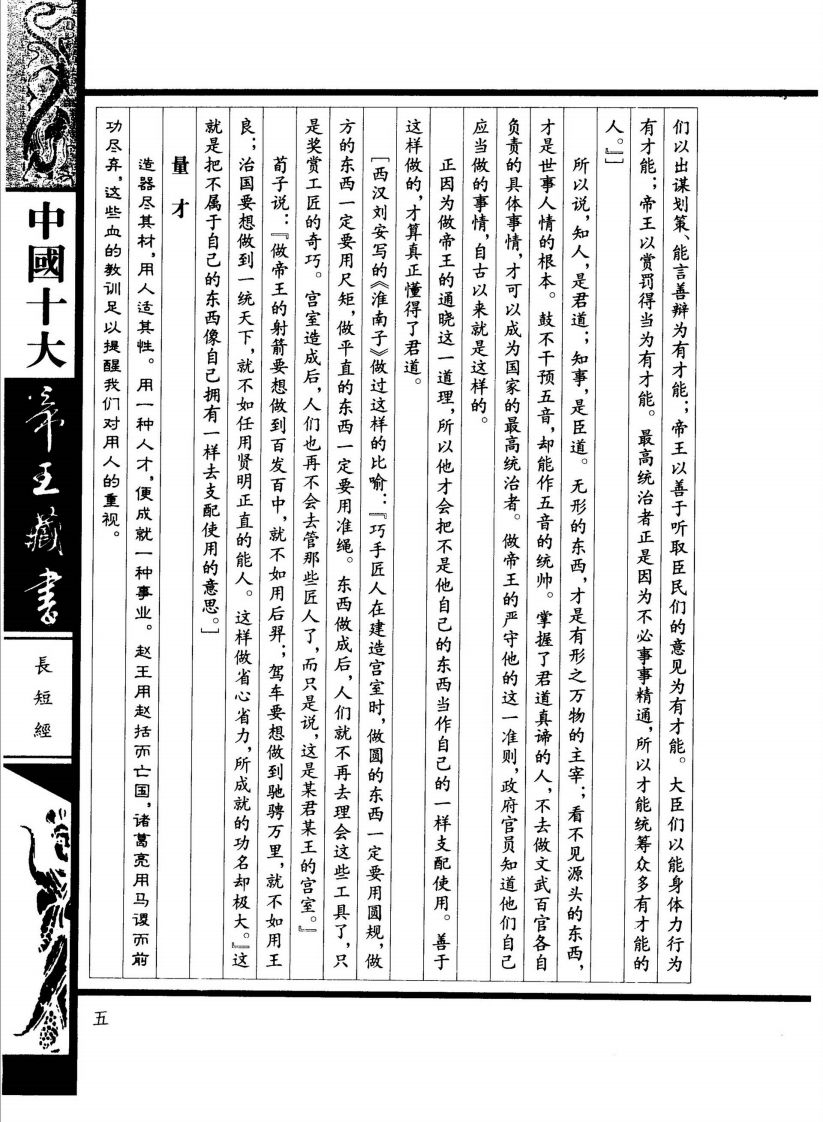 们以出谋划策、能言善辩为有才能；帝王以善于听取臣民们的意见为有才能。大臣们以能身体力行为
有才能；帝王以赏罚得当为有才能。最高统治者正是因为不必事事精通，所以才能统筹众多有才能的
人。』］
所以说，知人，是君道；知事，是臣道。无形的东西，才是有形之万物的主宰；看不见源头的东西，
才是世事人情的根本。鼓不干预五音，却能作五音的统帅。掌握了君道真谛的人，不去做文武百官各自
负责的具体事情，才可以成为国家的最高统治者。做帝王的严守他的这一准则，政府官员知道他们自己
应当做的事情，自古以来就是这样的。
正因为做帝王的通晓这一道理，所以他才会把不是他自己的东西当作自己的一样支配使用。善于
这样做的，才算真正懂得了君道。
［西汉刘安写的《淮南子》做过这样的比喻：『巧手匠人在建造宫室时，做圆的东西一定要用圆规，做
方的东西一定要用尺矩，做平直的东西一定要用准绳。东西做成后，人们就不再去理会这些工具了，只
是奖赏工匠的奇巧。宫室造成后，人们也再不会去管那些匠人了，而只是说，这是某君某王的宫室。』
荀子说：『做帝王的射箭要想做到百发百中，就不如用后羿；驾车要想做到驰骋万里，就不如用王
良；治国要想做到一统天下，就不如任用贤明正直的能人。这样做省心省力，所成就的功名却极大。』这
就是把不属于自己的东西像自己拥有一样去支配使用的意思。］
量才
造器尽其材，用人适其性。用一种人才，便成就一种事业。赵王用赵括而亡国，诸葛亮用马谡而前
功尽弃，这些血的教训足以提醒我们对用人的重视。
中國十大
帝王藏書
長短經
五